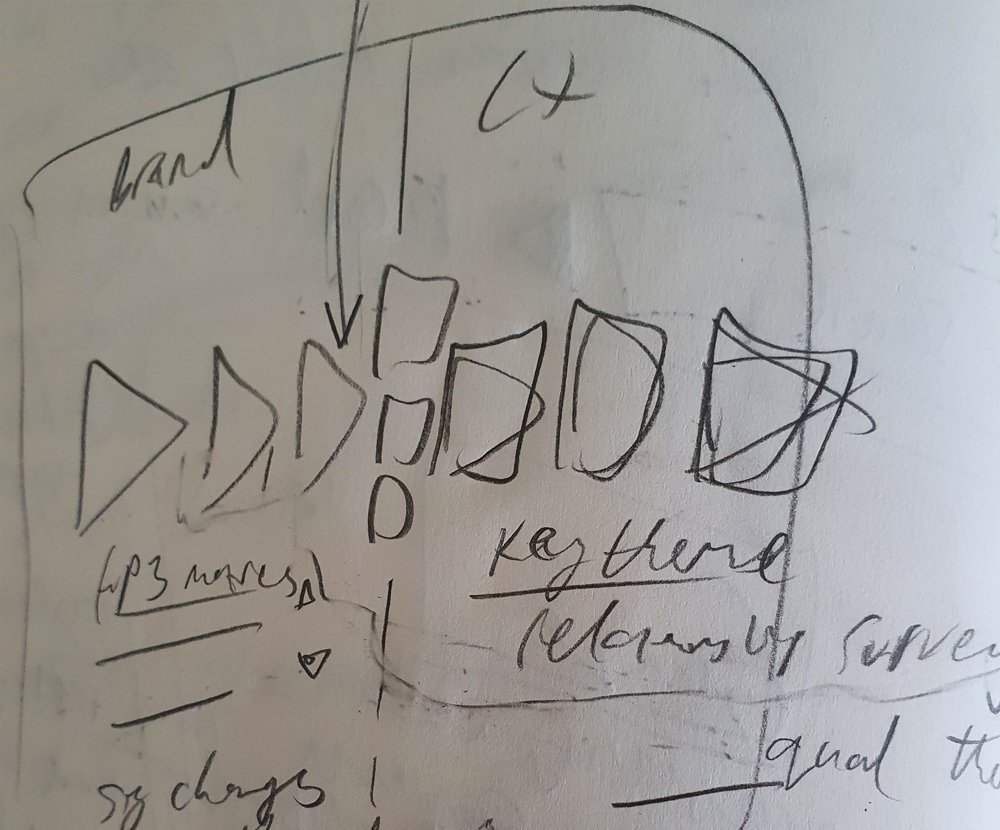 brand
CX
(top 3 movers)
Key theme
relationship survey
qual the
sig changes